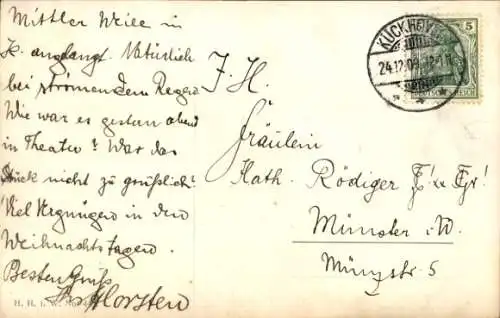 Mittler Weile in
K. anglangt. Natürlich
bei strömendem Regen
Wie war es gestern abend
in Theater? War das
Stück nicht zu gruslich?
Viel Vergnügen in den
Weihnachtstagen.
Besten Gruß
Horsten
H. H. i. W.
KÜCKHOVEN
24.12.09
5
DEUTSCHES REICH
J. H.
Fräulein
Kath. Rödiger
Münster i. W.
Münzstr. 5